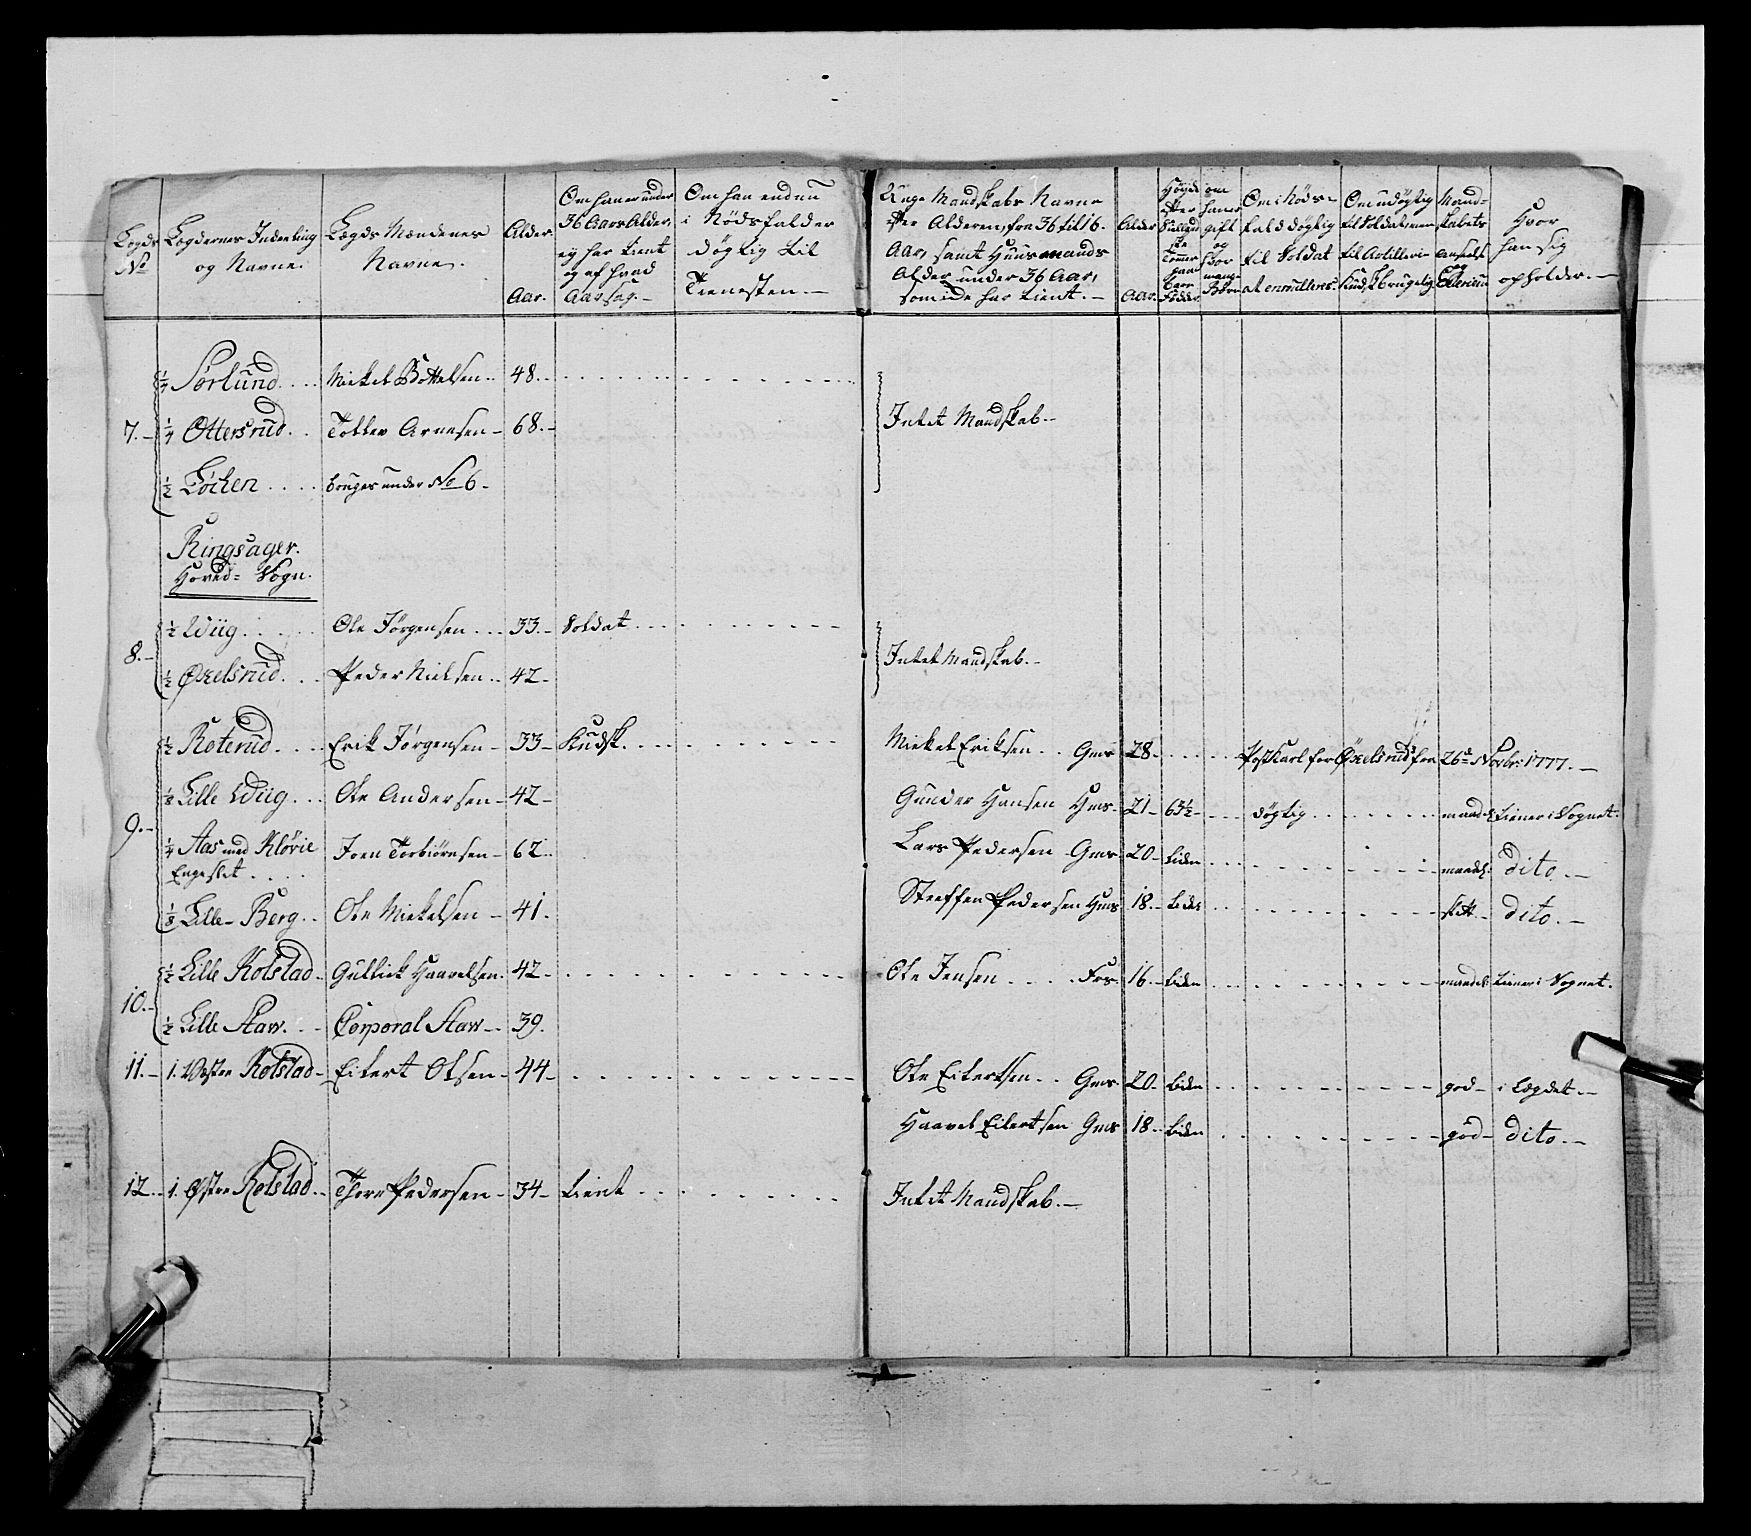 Lægds No
Lægdernes Indeeling og Navne.
Lægds Mændenes Navne.
Alder Aar.
Om han er under 36 Aars Alder, ey har tient og af hvad Aarsag.
Om han endnu i Nødsfalder døgtig til Tienesten.
Unge Mandskabs Navne efter Alderen, fra 36 til 16 Aar, samt Huusmands Alder under 36 Aar, som ide har tient.
Alder Aar.
om han er gift og hvor mange Børn
Om i Nødsfald døgtig til Soldat at enrulleres.
Om udøgtig til Soldat, men til Artillerie Kudsk brugelig
Mandskabets Anseelse og
Hvor han sig opholder.
7. 1/4 Sørlund Mickel Bottelsen 48.
1/4 Ottersrud Tollev Arnesen 68. Intet Mandskab.
1/2 Löchen bruges under No 6
Ringsager. Hoved Sogn.
8. 1/2 Wiig Ole Jörgensen 33. Soldat
1/2 Øxelsrud Peder Nielsen 42 Intet Mandskab.
9. 1/2 Roterud Erik Jörgensen 33 Kudsk Mickel Eriksen Gms 28 Postkarl for Øxelsrud fra 26de Novbr: 1777.
1/8 Lille Wiig Ole Andersen 42 Gunder Hansen Hms 21 63 1/2 døgtig maadel: tiener i Sognet.
1/4 Aas med Kløvie Engeslet Joen Torbiörnsen 62 Lars Pedersen Gms 20 liden maadel: dito
1/8 Lille Berg Ole Mickelsen 41. Steffen Pedersen Hms 18. liden slet dito
10. 1/2 Lille Kolstad Gullick Haavelsen 42 Ole Jensen Fos. 16 liden maadel: tiener i Sognet.
1/2 Lille Staw Corporal Staw 39.
11. 1. Vestre Kolstad Eilert Olsen 44 Ole Eilertsen Gms 20 liden god i Lægdet
Haavel Eilertsen Gms 18 liden god dito
12. 1. Østre Kolstad Thore Pedersen 34 tient Intet Mandskab.